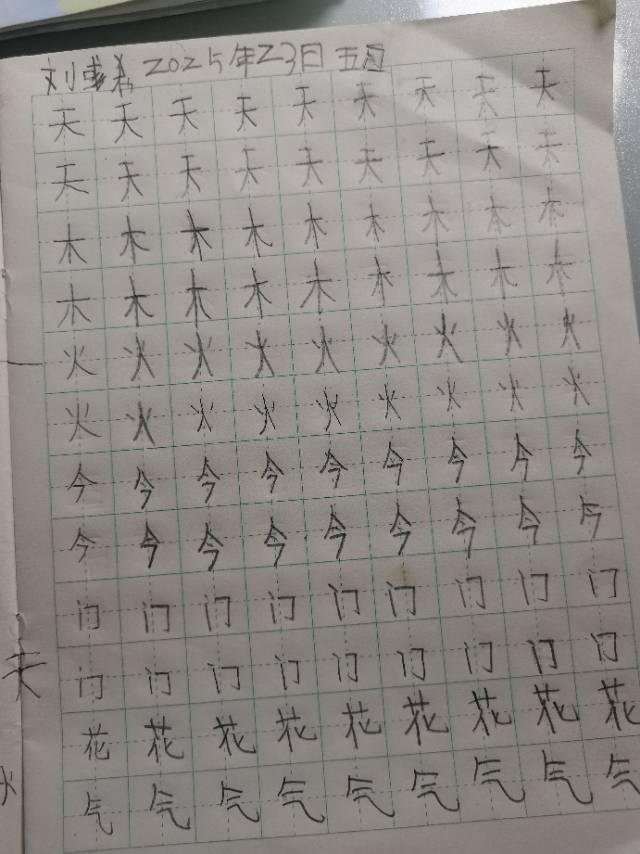 刘 2025年23日五月
天天天天天天天天天
天天天天天天天天天
木木木木木木木木木
木木木木木木木木木
火火火火火火火火火
火火火火火火火火火
今今今今今今今今今
今今今今今今今今今
门门门门门门门门门
门门门门门门门门门
花花花花花花花花花
气气气气气气气气气
天
火